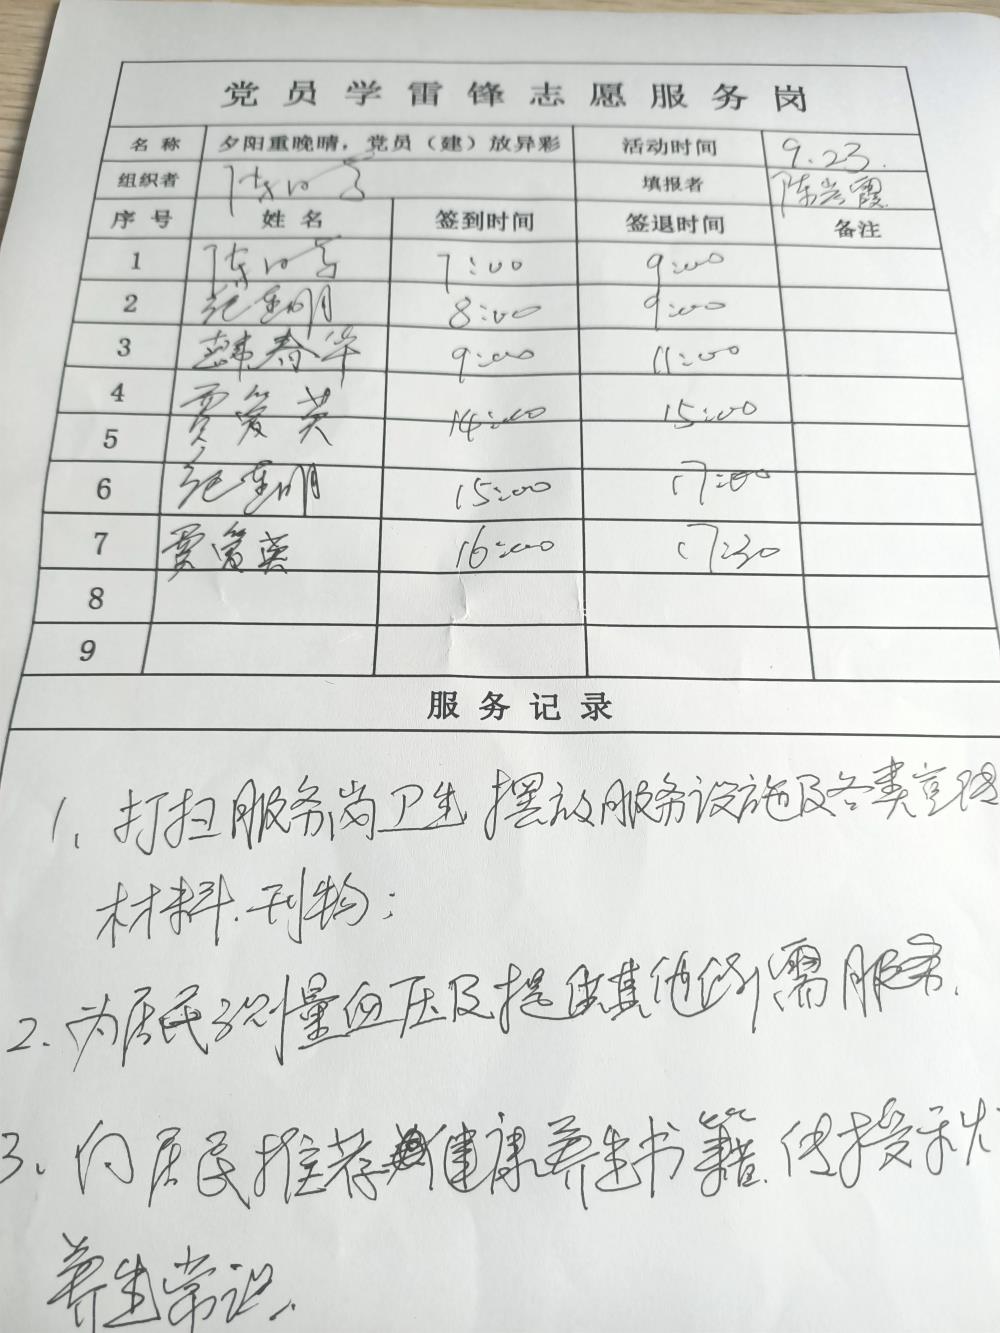 党员学雷锋志愿服务岗
名称 夕阳重晚晴，党员（建）放异彩 活动时间 9.23.
组织者 填报者 陈兴霞
序号 姓名 签到时间 签退时间 备注
1 7:00 9:00
2 8:00 9:00
3 韩春华 9:00 11:00
4 贾爱英 14:00 15:00
5
6 15:00 17:00
7 贾爱英 16:00 17:30
8
9
服务记录
1、打扫服务岗卫生 摆放服务设施及各类宣传
材料.刊物;
2、为居民测量血压及提供其他所需服务.
3、向居民推荐健康养生书籍.传授秋
养生常识.